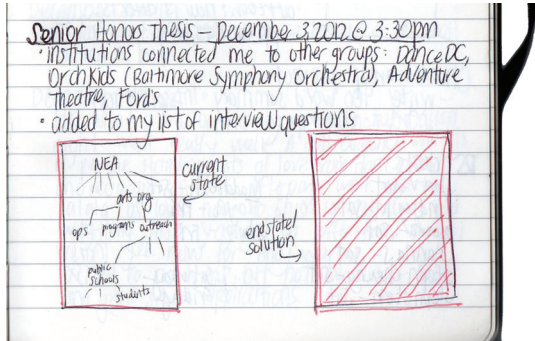 Senior Honors Thesis – December 3, 2012 @ 3:30pm
• institutions connected me to other groups: Dance DC,
OrchKids (Baltimore Symphony Orchestra), Adventure
Theatre, Ford's
• added to my list of interview questions
NEA
arts org
ops programs outreach
public
schools
students
current
state
endstate/
solution